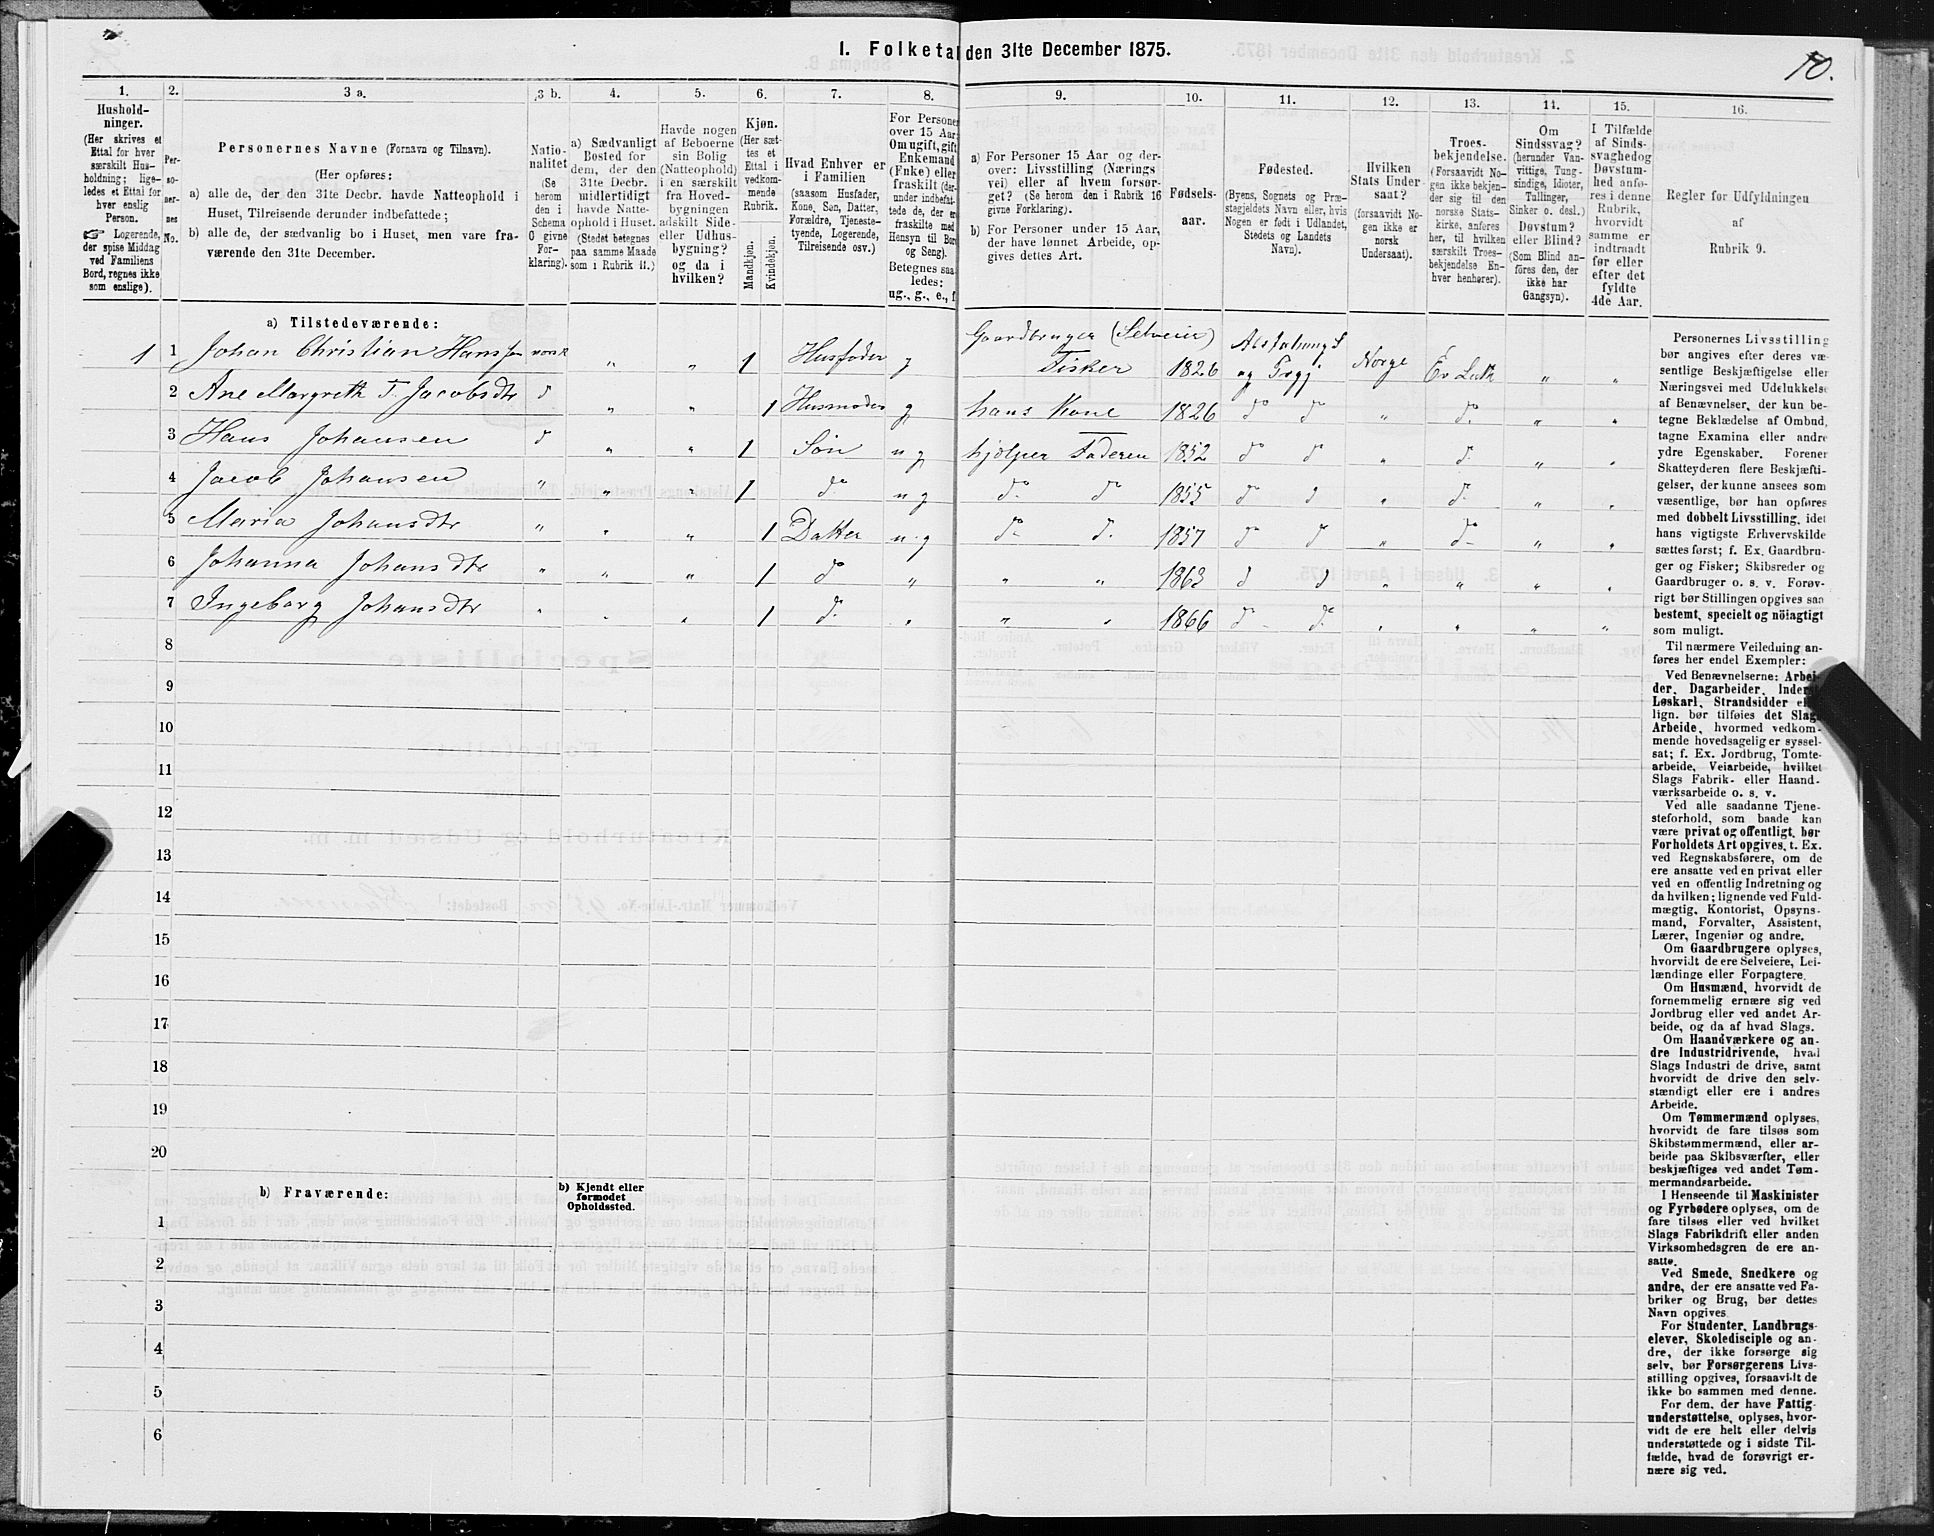 I. Folketal den 31te December 1875.
10.
1. 2. 3 a. 3 b. 4. 5. 6. 7. 8. 9. 10. 11. 12. 13. 14. 15. 16.
Hushold-
ninger.
(Her skrives et
Ettal for hver
særskilt Hus-
holdning; lige-
ledes et Ettal for
hver enslig
Person.
☞ Logerende,
der spise Middag
ved Familiens
Bord, regnes ikke
som enslige).
Per-
so-
ner-
nes
No.
Personernes Navne (Fornavn og Tilnavn).
(Her opføres:
a) alle de, der den 31te Decbr. havde Natteophold i
Huset, Tilreisende derunder indbefattede;
b) alle de, der sædvanlig bo i Huset, men vare fra-
værende den 31te December.
Natio-
nalitet
(Se
herom
den i
Schema
O givne
For-
klaring).
a) Sædvanligt
Bosted for
dem, der den
31te Decbr.
midlertidigt
havde Natte-
ophold i Huset.
(Stedet betegnes
paa samme Maade
som i Rubrik 11.)
Havde nogen
af Beboerne
sin Bolig
(Natteophold)
i en særskilt
fra Hoved-
bygningen
adskilt Side-
eller Udhus-
bygning?
og da i
hvilken?
Kjøn.
(Her sæt-
tes et
Ettal i
vedkom-
mende
Rubrik.
Mandkjøn.
Kvindekjøn.
Hvad Enhver er
i Familien
(saasom Husfader,
Kone, Søn, Datter,
Forældre, Tjeneste-
tyende, Logerende,
Tilreisende osv.)
For Personer
over 15 Aar:
Om ugift, gift,
Enkemand
(Enke) eller
fraskilt (der-
under indbefat-
tede de, der er
fraskilte med
Hensyn til Bord
og Seng).
Betegnes saa-
ledes:
ug., g., e., f.
a) For Personer 15 Aar og der-
over: Livsstilling (Nærings
vei) eller af hvem forsør-
get? (Se herom den i Rubrik 16
givne Forklaring).
b) For Personer under 15 Aar,
der have lønnet Arbeide, op-
gives dettes Art.
Fødsels-
aar.
Fødested.
(Byens, Sognets og Præ-
stegjeldets Navn eller, hvis
Nogen er født i Udlandet,
Stedets og Landets
Navn).
Hvilken
Stats Under-
saat?
(forsaavidt No-
gen ikke er
norsk
Undersaat).
Troes-
bekjendelse.
(Forsaavidt No-
gen ikke bekjen-
der sig til den
norske Stats-
kirke, anføres
her, til hvilken
særskilt Troes-
bekjendelse En-
hver henhører).
Om
Sindssvag?
(herunder Van-
vittige, Tung-
sindige, Idioter,
Tullinger,
Sinker o. desl.)
Døvstum?
eller Blind?
(Som Blind an-
føres den, der
ikke har
Gangsyn).
I Tilfælde
af Sinds-
svaghed og
Døvstum-
hed anfø-
res i denne
Rubrik,
hvorvidt
samme er
indtraadt
før eller
efter det
fyldte
4de Aar.
Regler for Udfyldningen
af
Rubrik 9.
a) Tilstedeværende:
1 1 Johan Christian Hanssen norsk " " 1 Husfader g Gaardbruger (Selveier) Fisker 1826 Alstahaug S og Prgj Norge Ev Luth " "
2 Ane Margreth F. Jacobsdtr do " " 1 Husmoder g hans Kone 1826 do do " do. " "
3 Hans Johansen do " " 1 Søn ug hjælper Faderen 1852 do do " do. " "
4 Jacob Johansen " " " 1 do ug do do 1855 do do " do. " "
5 Maria Johansdtr " " " 1 Datter ug do do. 1857 do do " do " "
6 Johanna Johansdtr " " " 1 do " " " 1863 do do " " " "
7 Ingeborg Johansdtr " " " 1 do. " " " 1866 do do " " " "
8
9
10
11
12
13
14
15
16
17
18
19
20
b) Fraværende:
b) Kjendt eller
formodet
Opholdssted.
1
2
3
4
5
6
Personernes Livsstilling
bør angives efter deres væ-
sentlige Beskjæftigelse eller
Næringsvei med Udelukkelse
af Benævnelser, der kun be-
tegne Beklædelse af Ombud,
tagne Examina eller andre
ydre Egenskaber. Forener
Skatteyderen flere Beskjæfti-
gelser, der kunne ansees som
væsentlige, bør han opføres
med dobbelt Livsstilling, idet
hans vigtigste Erhvervskilde
sættes først; f. Ex. Gaardbru-
ger og Fisker; Skibsreder og
Gaardbruger o. s. v. Forøv-
rigt bør Stillingen opgives saa
bestemt, specielt og nöiagtigt
som muligt.
Til nærmere Veiledning an-
føres her endel Exempler:
Ved Benævnelserne: Arbei-
der, Dagarbeider, Inderst,
Løskarl, Strandsidder el.
lign. bør tilføies det Slags
Arbeide, hvormed vedkom-
mende hovedsagelig er syssel-
sat; f. Ex. Jordbrug, Tomte-
arbeide, Veiarbeide, hvilket
Slags Fabrik- eller Haand-
værksarbeide o. s. v.
Ved alle saadanne Tjene-
steforhold, som baade kan
være privat og offentligt, bør
Forholdets Art opgives, t. Ex.
ved Regnskabsførere, om de
ere ansatte ved en privat eller
ved en offentlig Indretning og
da hvilken; lignende ved Fuld-
mægtig, Kontorist, Opsyns-
mand, Forvalter, Assistent,
Lærer, Ingeniør og andre.
Om Gaardbrugere oplyses,
hvorvidt de ere Selveiere, Lei-
lændinge eller Forpagtere.
Om Husmænd, hvorvidt de
fornemmelig ernære sig ved
Jordbrug eller ved andet Ar-
beide, og da af hvad Slags.
Om Haandværkere og an-
dre Industridrivende, hvad
Slags Industri de drive, samt
hvorvidt de drive den selv-
stændigt eller ere i andres
Arbeide.
Om Tømmermænd oplyses,
hvorvidt de fare tilsøs som
Skibstømmermænd, eller ar-
beide paa Skibsværfter, eller
beskjæftiges ved andet Tøm-
mermandsarbeide.
I Henseende til Maskinister
og Fyrbødere oplyses, om de
fare tilsøs eller ved hvilket
Slags Fabrikdrift eller anden
Virksomhedsgren de ere an-
satte.
Ved Smede, Snedkere og
andre, der ere ansatte ved Fa-
briker og Brug, bør dettes
Navn opgives
For Studenter, Landbrugs-
elever, Skoledisciple og an-
dre, der ikke forsørge sig
selv, bør Forsørgerens Livs-
stilling opgives, forsaavidt de
ikke bo sammen med denne.
For dem, der have Fattig-
understøttelse, oplyses, hvor-
vidt de ere helt eller delvis
understøttede og i sidste Til-
fælde, hvad de forøvrigt er-
nære sig ved.